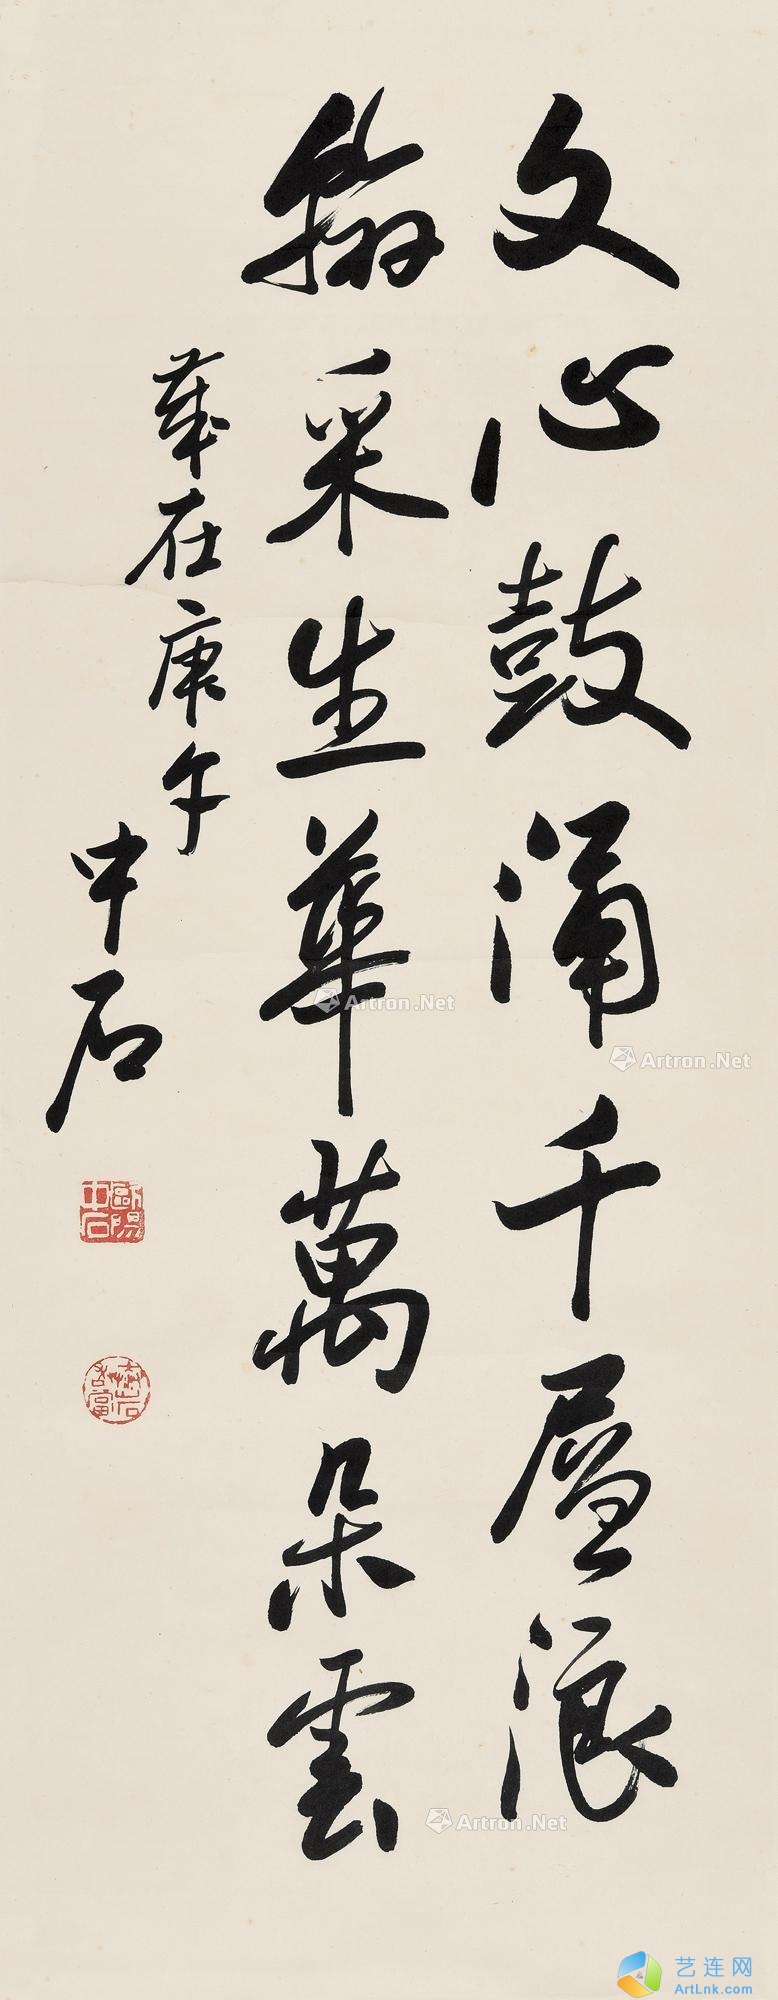 文心鼓涌千层浪
翰采生華萬朵雲
歲在庚午
中石
歐陽中石
Artron.Net
Artron.Net
Artron.Net
艺连网
ArtLnk.com